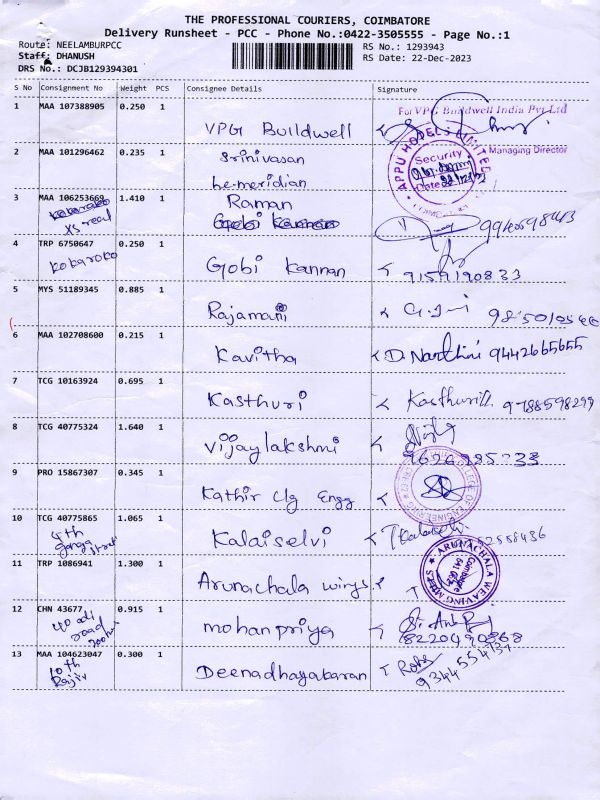 THE PROFESSIONAL COURIERS, COIMBATORE
Delivery Runsheet - PCC - Phone No.:0422-3505555 - Page No.:1
Route: NEELAMBURPCC RS No.: 1293943
Staff: DHANUSH RS Date: 22-Dec-2023
DRS No.: DCJB129394301
S No Consignment No Weight PCS Consignee Details Signature
1 MAA 107388905 0.250 1
For VPG Buildwell India Pvt Ltd
VPG Buildwell
Managing Director
2 MAA 101296462 0.235 1 Srinivasan
Le-meridian
APPU HOTELS LIMITED
Security
Date
3 MAA 106253669 1.410 1 Raman
Gobi Kannan
4 TRP 6750647 0.250 1
kokaroko Gobi Kannan
9159190833
5 MYS 51189345 0.885 1
Rajamani
6 MAA 102708600 0.215 1
Kavitha D. Nanthini 9442665655
7 TCG 10163924 0.695 1
Kasthuri Kasthuri 9788598299
8 TCG 40775324 1.640 1
Vijaylakshmi
9 PRO 15867307 0.345 1
Kathir Clg Engg
COLLEGE OF ENGINEERING
10 TCG 40775865 1.065 1
4th
street
Kalaiselvi
11 TRP 1086941 1.300 1
Arunachala wings
ARUNACHALA WEAVING MILLS
Coimbatore
12 CHN 43677 0.915 1
road
mohanpriya
13 MAA 104623047 0.300 1
10th
Rajiv
Deenadhayabaran